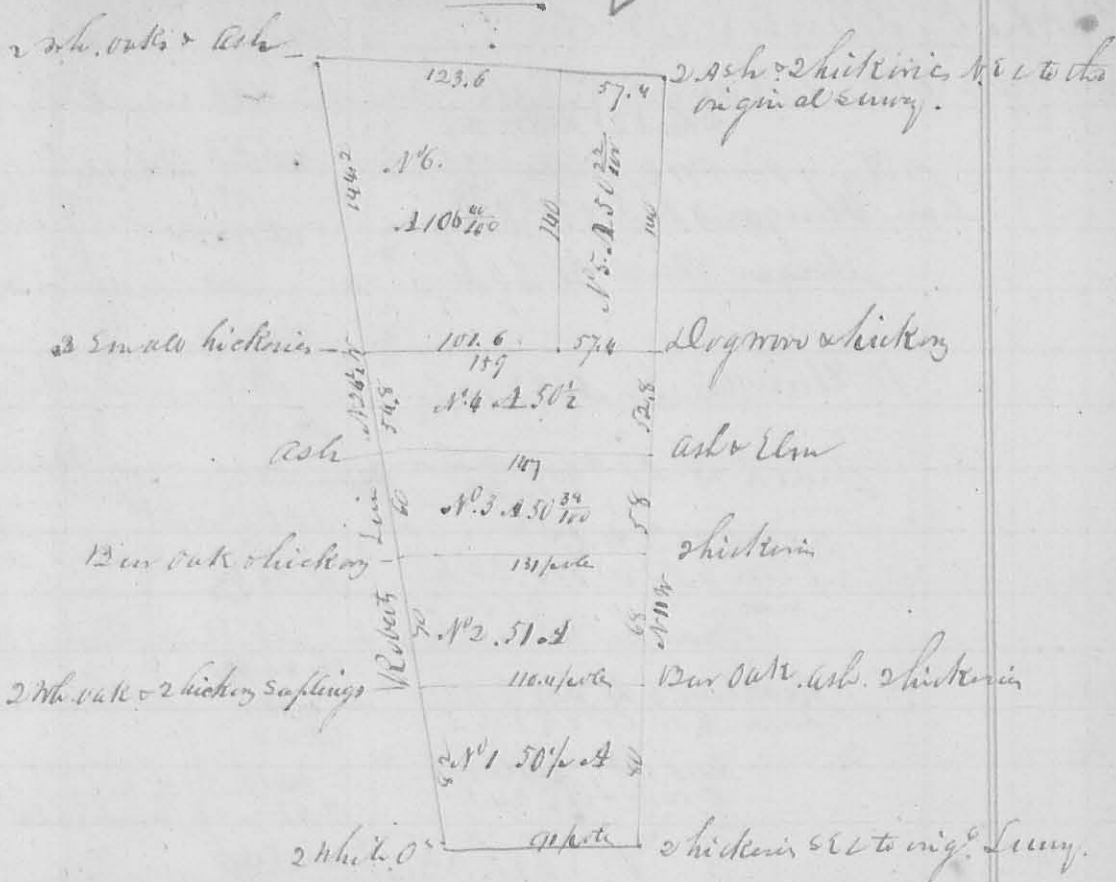 2 wh. oaks & Ash
123.6
57.4
2 Ash & 2 hickories N.E.C to the
original Survey.
144.2
No 6.
A 106 /100
140
No 5. A 50 22/100
140
3 Small hickories
101.6
57.4
Dogwood & hickory
159
54.8
No 4 A 50 1/2
52.8
Ash
147
Ash & Elm
60
No 3 A 50 39/100
58
Bur Oak & hickory
131 pole
2 hickories
Roberts Line
No 2. 51 A
68
N 11 W
2 Wh. oak & 2 hickory Saplings
110.4 poles
Bur Oak. Ash. 2 hickories
82
No 1 50 1/2 A
80
2 White Os
91 pole
2 hickories S E C to orig. Survey.